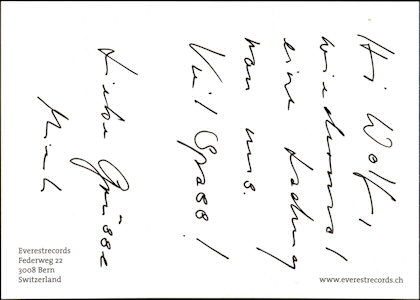 Hi Wolf,
wiedermal
eine Ladung
von uns.
Viel Spass!
Liebe Grüsse
Everestrecords
Federweg 22
3008 Bern
Switzerland
www.everestrecords.ch